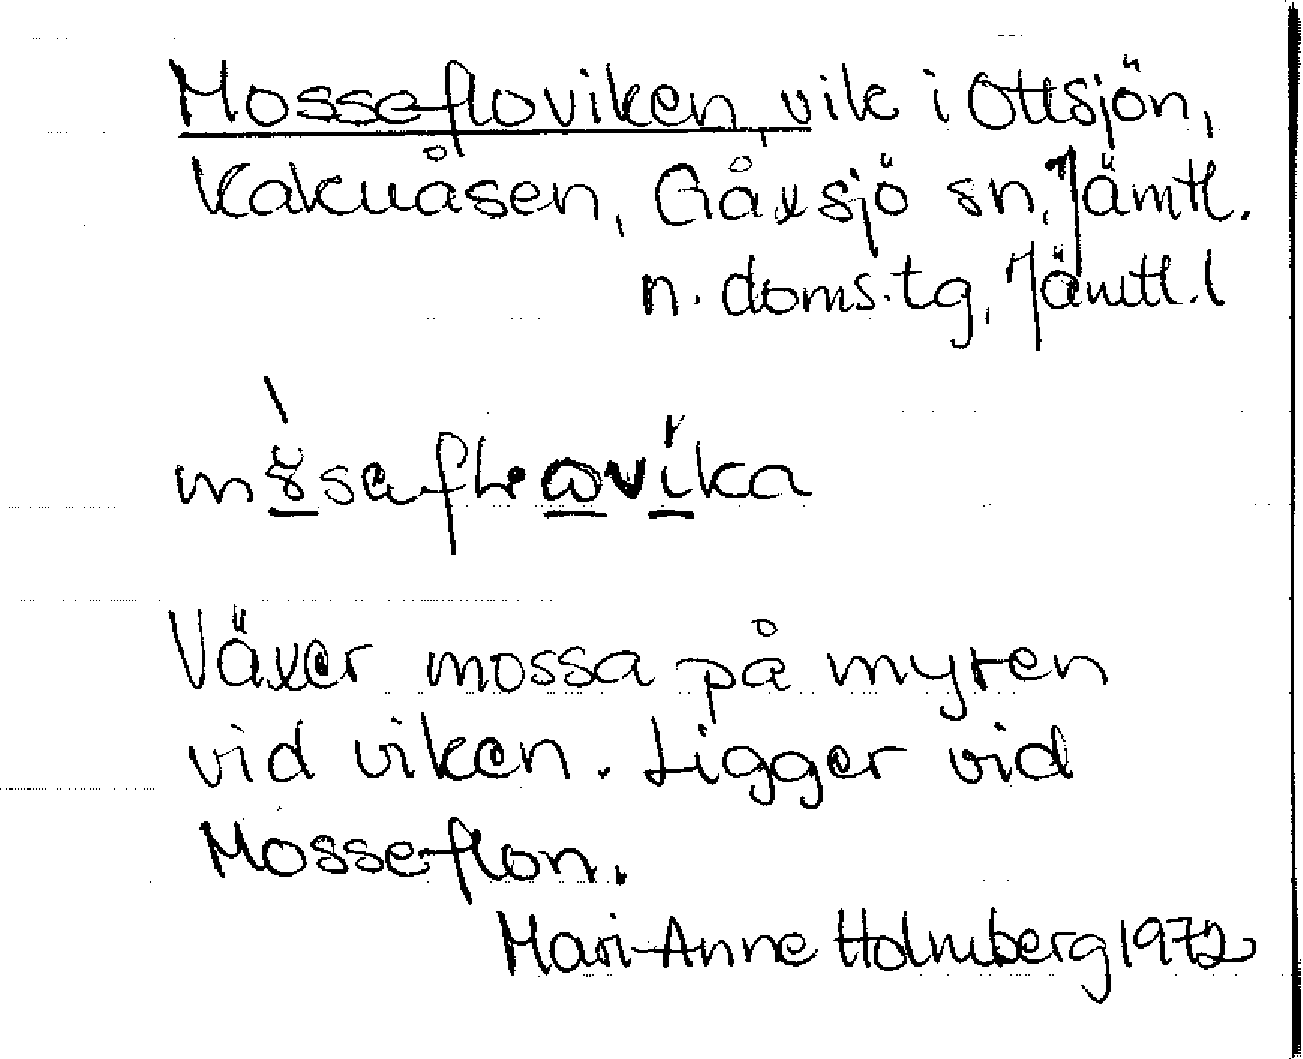 Mossefloviken, vik i Ottsjön,
Kakuåsen, Gåxsjö sn, Jämtl.
n. doms.tg, Jämtl.l
Växer mossa på myren
vid viken. Ligger vid
Mosseflon.
Mari-Anne Holmberg 1972